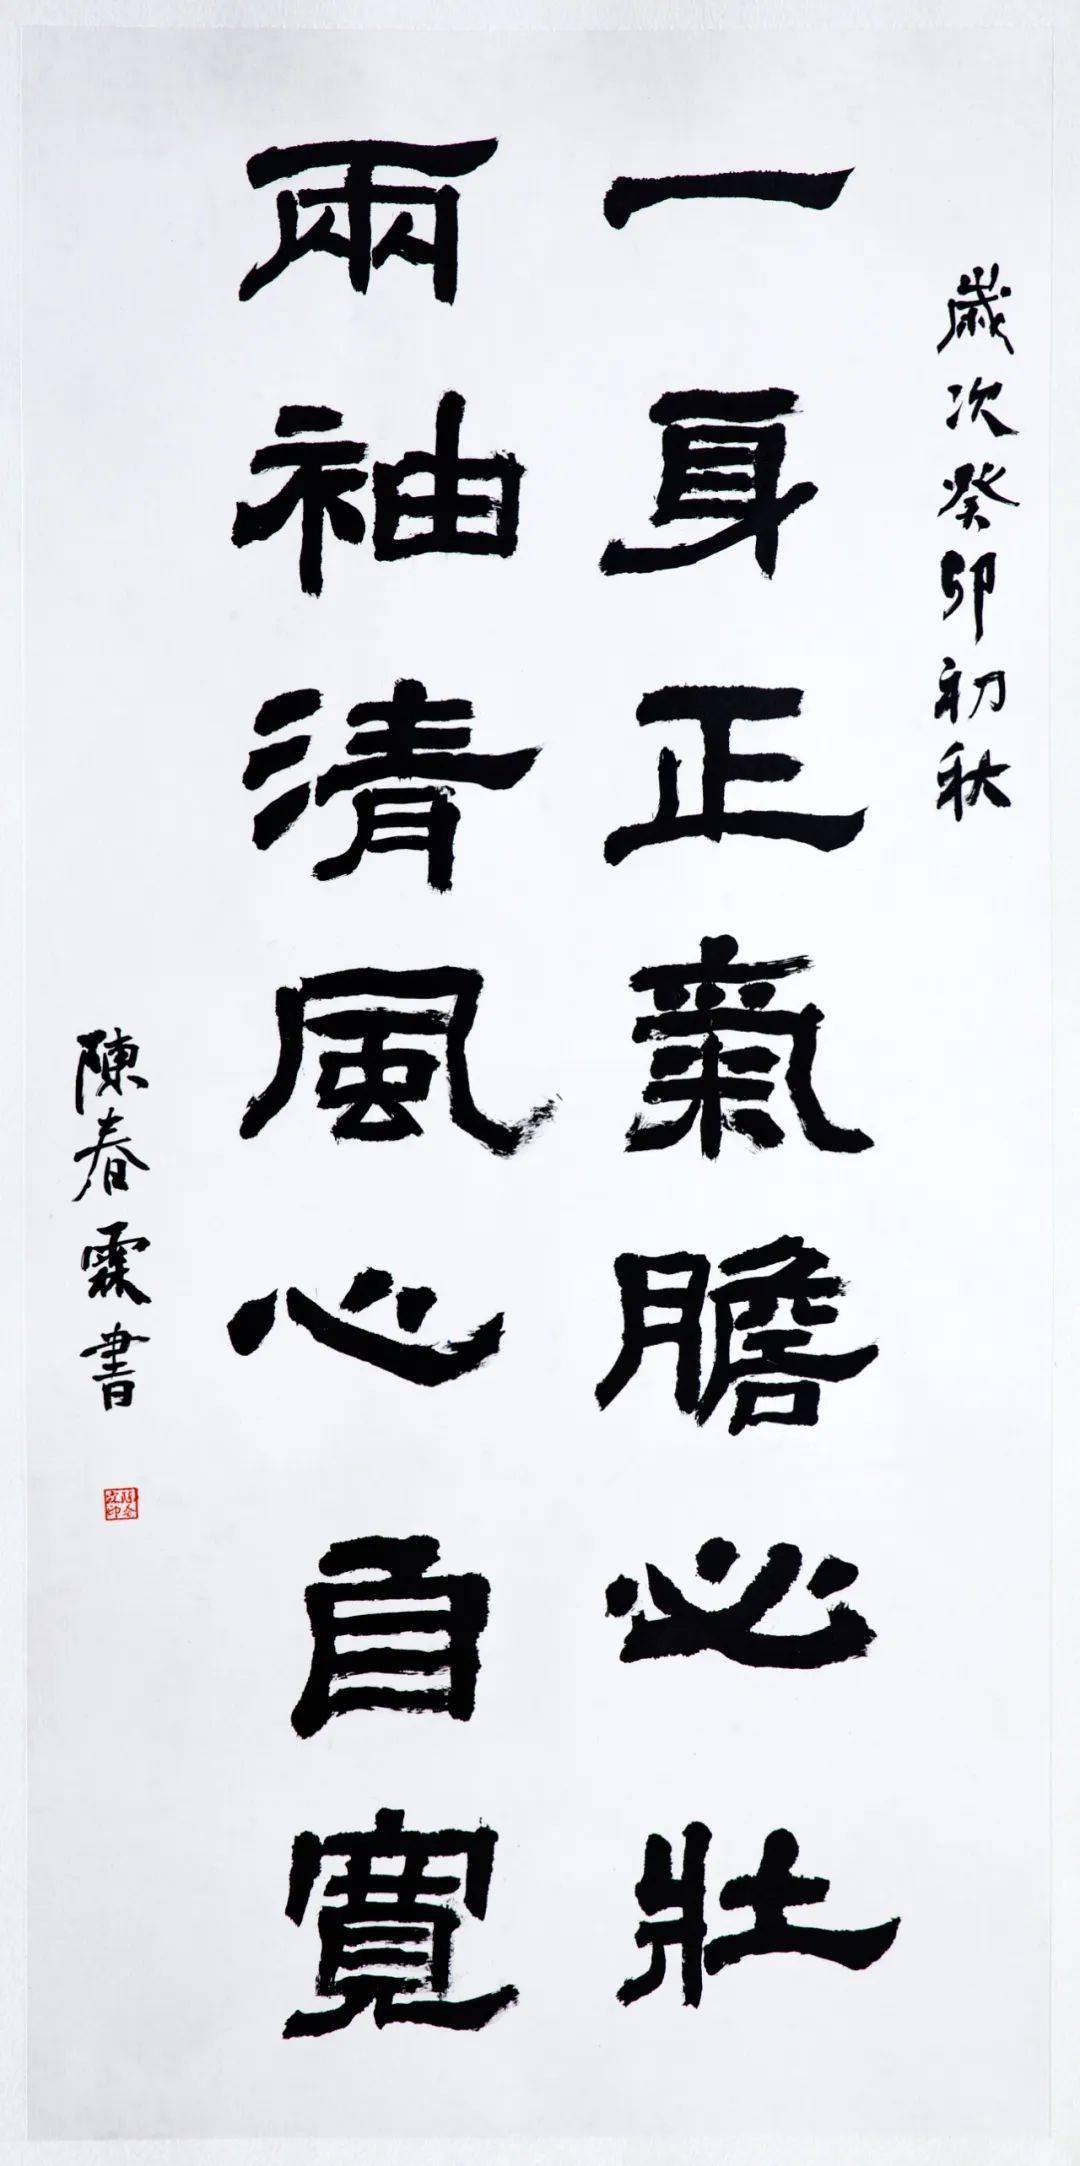 歲次癸卯初秋
一身正氣膽必壯
兩袖清風心自寬
陳春霖書